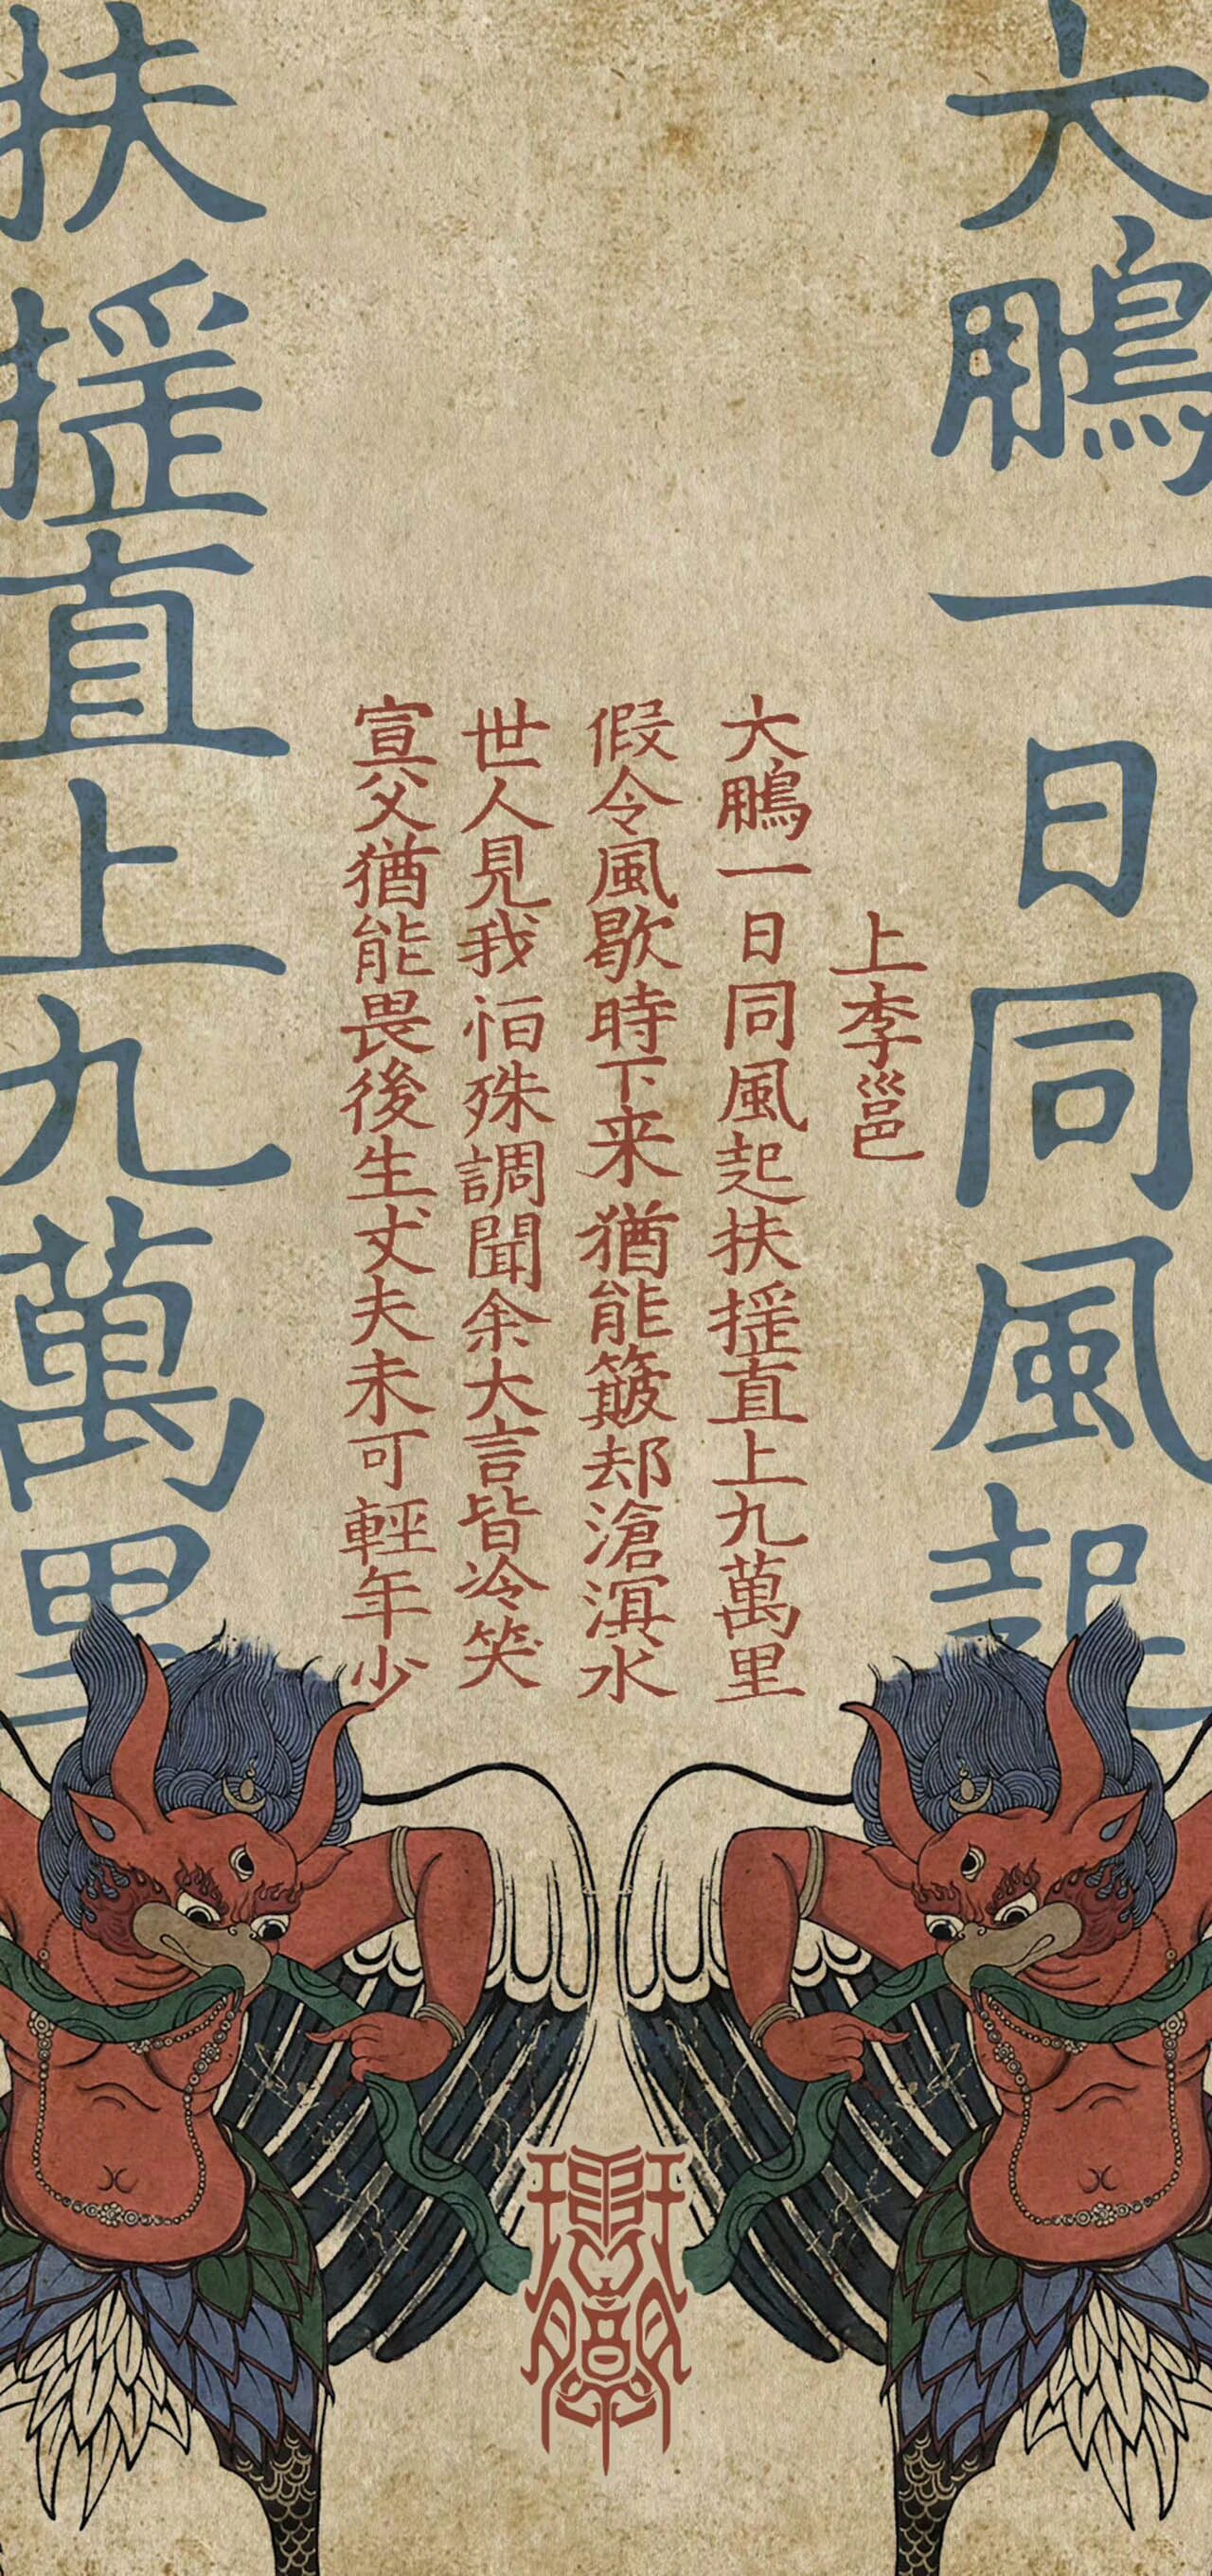 大鵬一日同風起
扶揺直上九萬里
上李邕
大鵬一日同風起扶揺直上九萬里
假令風歇時下来猶能簸却滄溟水
世人見我怕殊調聞余大言皆冷笑
宣父猶能畏後生丈夫未可輕年少